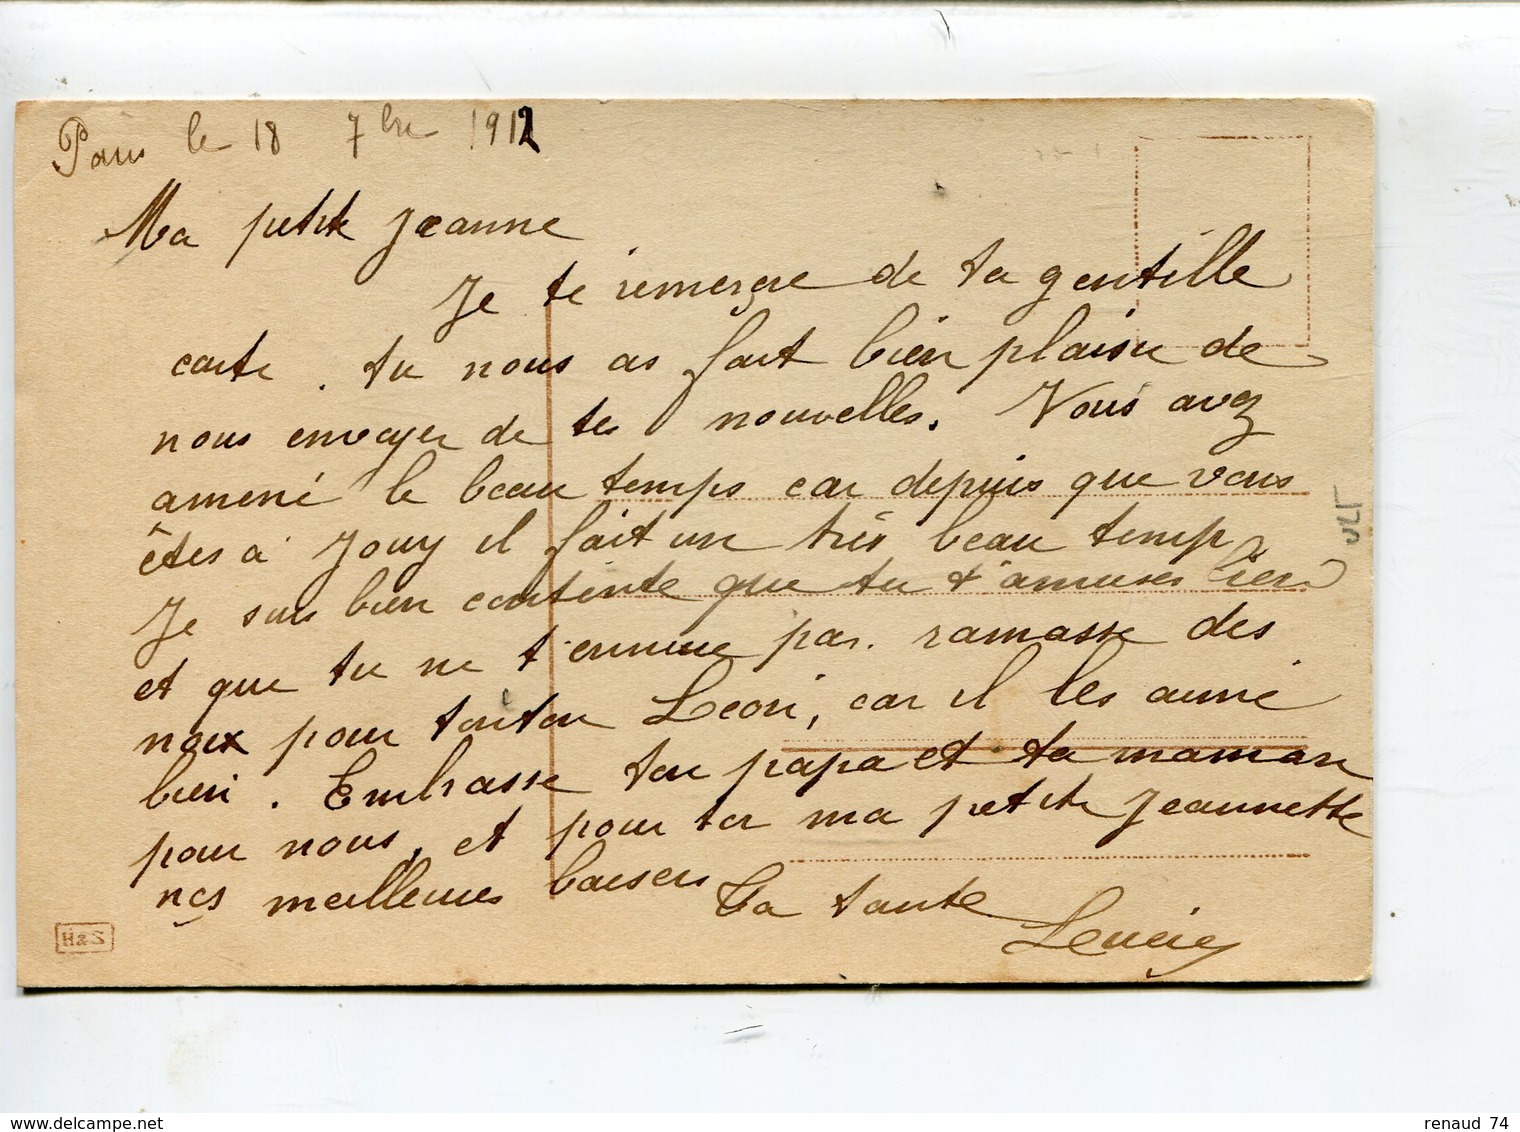 Paris le 18 7bre 1912
Ma petite Jeanne
Je te remerçie de ta gentille
carte. tu nous as fait bien plaisir de
nous envoyer de tes nouvelles. Vous avez
amené le beau temps car depuis que vous
êtes à Jouy il fait un très beau temps
Je suis bien contente que tu t'amuses bien
et que tu ne t'ennuie pas. ramasse des
noix pour tonton Léon, car il les aime
bien. Embrasse ton papa et ta maman
pour nous, et pour toi ma petite Jeannette
nos meilleures baisers
Ta tante
Lucie
H&S
renaud 74